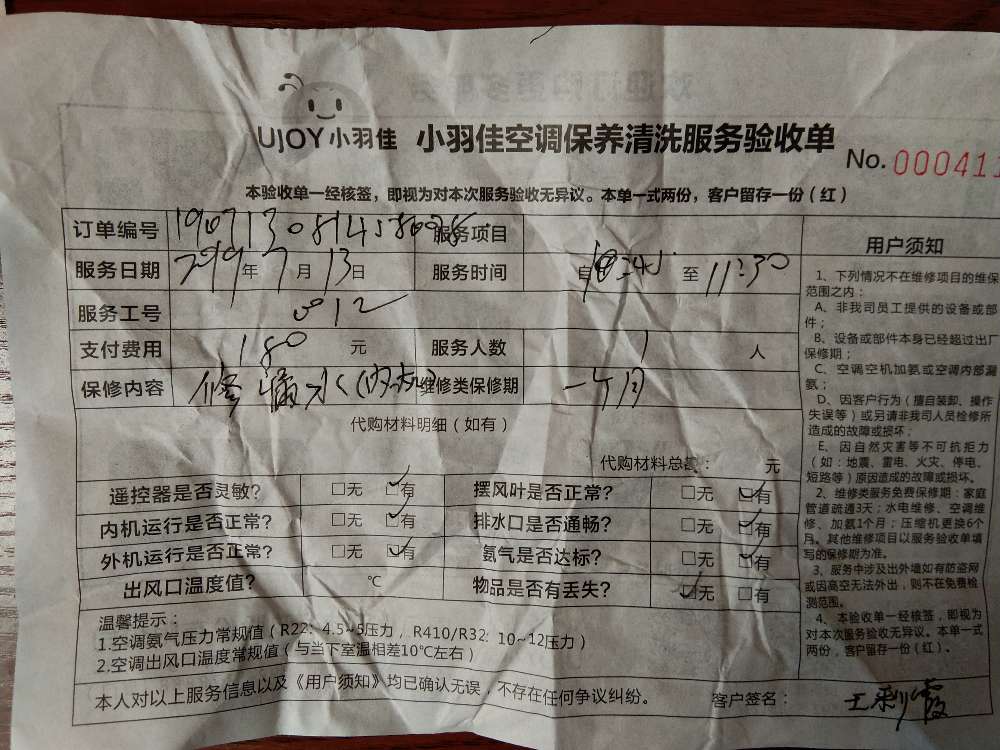 UJOY 小羽佳 小羽佳空调保养清洗服务验收单
No. 000411
本验收单一经核签，即视为对本次服务验收无异议。本单一式两份，客户留存一份（红）
订单编号 服务项目
服务日期 年 7 月 13 日 服务时间 自 至 11:30
服务工号 012
支付费用 180 元 服务人数 1 人
保修内容 修漏水(内机) 维修类保修期 一个月
代购材料明细（如有）
代购材料总额： 元
遥控器是否灵敏? □无 ☑有 摆风叶是否正常? □无 ☑有
内机运行是否正常? □无 ☑有 排水口是否通畅? □无 ☑有
外机运行是否正常? □无 ☑有 氨气是否达标? □无 ☑有
出风口温度值? ℃ 物品是否有丢失? ☑无 □有
温馨提示：
1.空调氨气压力常规值（R22: 4.5~5压力，R410/R32: 10~12压力）
2.空调出风口温度常规值（与当下室温相差10℃左右）
本人对以上服务信息以及《用户须知》均已确认无误，不存在任何争议纠纷。 客户签名：王利霞
用户须知
1、下列情况不在维修项目的维保
范围之内：
A、非我司员工提供的设备或部
件；
B、设备或部件本身已经超过出厂
保修期；
C、空调空机加氨或空调内部漏
氨；
D、因客户行为（擅自装卸、操作
失误等）或另请非我司人员检修所
造成的故障或损坏；
E、因自然灾害等不可抗拒力
（如：地震、雷电、火灾、停电、
短路等）原因造成的故障或损坏。
2、维修类服务免费保修期：家庭
管道疏通3天；水电维修、空调维
修、加氨1个月；压缩机更换6个
月。其他维修项目以服务验收单填
写的保修期为准。
3、服务中涉及出外墙如有防盗网
或因高空无法外出，则不在免费检
测范围。
4、本验收单一经核签，即视为
对本次服务验收无异议。本单一式
两份，客户留存一份（红）。